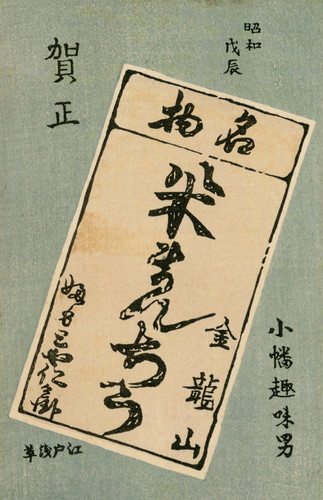 昭和
戊辰
賀正
名物
米まんぢう
金龍山
江戸浅草
小幡趣味男